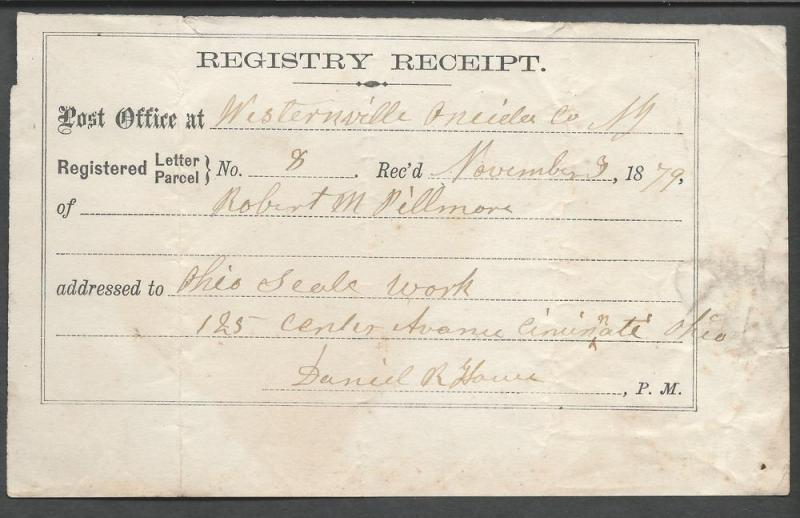 REGISTRY RECEIPT.
Post Office at Westernville Oneida Co NY
Registered Letter Parcel } No. 8. Rec'd November 3, 1879,
of Robert M Pillmore
addressed to Ohio Scale Work
125 Center Avanue Cincinnati Ohio
Daniel R Howe, P. M.